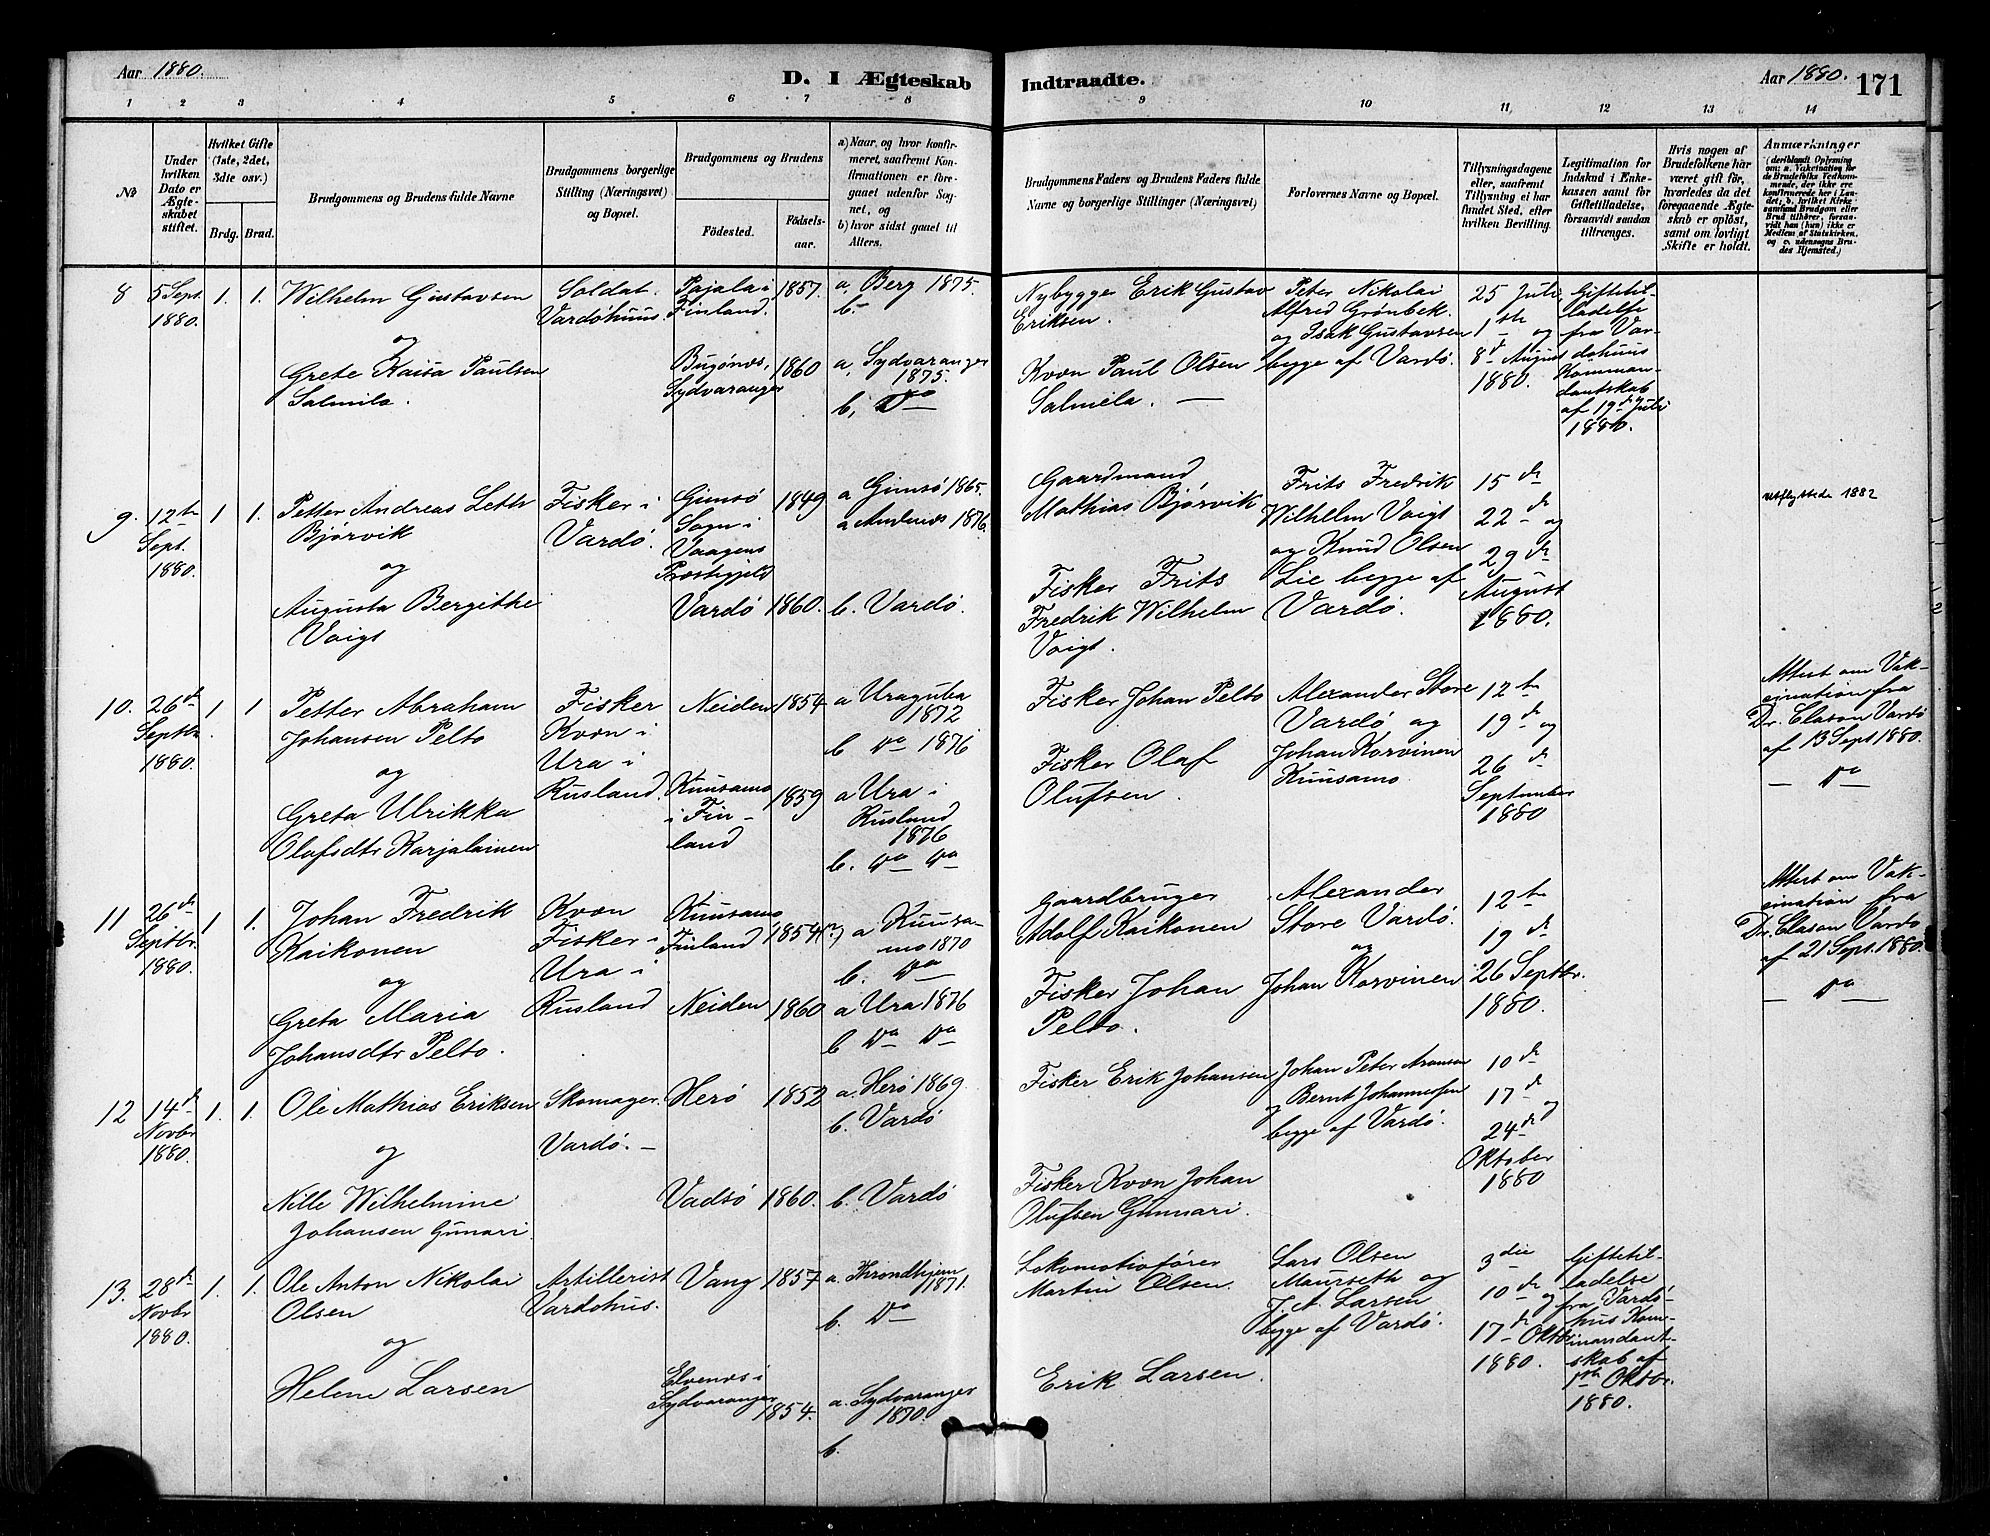 Aar 1880.
D. I Ægteskab Indtraadte.
Aar 1880. 171
1 2 3 4 5 6 7 8 9 10 11 12 13 14
No
Under hvilken Dato er Ægteskabet stiftet.
Hvilket Gifte (1ste, 2det, 3die osv.)
Brdg. Brud.
Brudgommens og Brudens fulde Navne
Brudgommens borgerlige Stilling (Næringsvei) og Bopæl.
Brudgommens og Brudens
Födested.
Födselsaar.
a) Naar, og hvor konfirmeret, saafremt Konfirmationen er foregaaet udenfor Sognet, og
b) hvor sidst gaaet til Alters.
Brudgommens Faders og Brudens Faders fulde Navne og borgerlige Stillinger (Næringsvei)
Forlovernes Navne og Bopæl.
Tillysningsdagene eller, saafremt Tillysning ei har fundet Sted, efter hvilken Bevilling.
Legitimation for Indskud i Enkekassen samt for Giftetilladelse, forsaavidt saadan tiltrænges.
Hvis nogen af Brudefolkene har været gift før, hvorledes da det foregaaende Ægteskab er oplöst, samt om lovligt Skifte er holdt.
Anmærkninger
(deriblandt Oplysning om: a. Vakcination for de Brudefolks Vedkommende, der ikke ere konfirmerede her i Landet, b. hvilket Kirkesamfund Brudgom eller Brud tilhører, forsaavidt han (hun) ikke er Medlem af Statskirken, og c. udensogns Brudes Hjemsted.)
8
5 Sept.
1880.
1. 1.
Wilhelm Gustavsen
og
Grete Kaisa Paulsen
Salmila.
Soldat.
Vardöhuus.
Pajala i
Finland.
1857.
a, Berg 1875.
b. –
Bugönes,
Sydvaranger
1860
a, Sydvaranger
1875.
b, Do
Nybygge Erik Gustav
Eriksen.
Kvæn Paul Olsen
Salmela. –
Peter Nikolai
Alfred Grönbek
og Isak Gustavsen
begge af Vardö.
25 Juli,
1ste og
8de August
1880.
Giftetilladelse
fra Vardohuus
Kommandantskab
af 19de Juli
1880.
9.
12te
Sept.
1880.
1 1.
Petter Andreas Leth
Bjørvik
og
Augusta Bergitthe
Voigt
Fisker i
Vardö.
Gimsö
Sogn i
Vaagens
Præstegjeld
1849
a Gimsö 1865.
1876.
Vardö 1860. b. Vardö.
Gaardmand
Mathias Bjørvik
Fisker Frits
Fredrik Wilhelm
Voigt.
Frits Fredrik
Wilhelm Voigt
og Knud Olsen
Lie begge af
Vardö.
15de
22de og
29de
August
1880.
utflyttede 1882
10.
26de
Septbr.
1880.
1 1
Petter Abraham
Johansen Pelto
og
Greta Ulrikka
Olafsdtr Karjalainen
Fisker
Kvæn i
Ura i
Rusland.
Neiden 1854
a Uraguba
1872
b Do 1876
Kuusamo
i Finland
1859
a Ura i
Rusland
1876
b. Do Do
Fisker Johan Pelto
Fisker Olaf
Olufsen.
Alexander Store
Vardö og
Johan Korvinen
Kuusamo
12te
19de og
26de
September
1880
Attest om Vakcination fra
Dr. Clason Vardö
af 13 Sept 1880.
– Do –
11
26de
Septbr.
1880.
1 1.
Johan Fredrik
Kaikonen
og
Greta Maria
Johansdtr Pelto.
Kvæn
Fisker i
Ura i
Rusland
Kuusamo
Finland
1854 (?)
a Kuusamo
1870
b. Do
Neiden 1860
a Ura 1876
b Do Do
Gaardbruger
Adolf Kaikonen
Fisker Johan
Pelto.
Alexander
Store Vardö.
og
Johan Korvinen
12te
19de
26 Septbr.
1880.
Attest om Vakcination fra
Dr. Clason Vardö
af 21 Sept. 1880.
– Do –
12
14de
Novbr
1880.
1. 1.
Ole Mathias Eriksen
og
Nille Wilhelmine
Johansen Gunari.
Skomager.
Vardö. –
Herö 1852
a. Herö 1869.
b. Vardö
Vadsö 1860. b. Vardö
Fisker Erik Johansen
Fisker Kvæn Johan
Olufsen Gunnari.
Johan Peter Aronsen
og Bernt Johannesen
begge af Vardö.
10de
17de og
24de
Oktober
1880
13.
28de
Novbr
1880.
1. 1.
Ole Anton Nikolai
Olsen
og
Helene Larsen
Artillerist
Vardöhus.
Vang 1857
a. Throndhjem
1871.
b. Do
Elvenes i
Sydvaranger
1854.
a. Sydvaranger
1870.
b.
Lokomotivfører
Martin Olsen.
Erik Larsen.
Lars Olsen
Maurseth og
J. A. Larsen
begge af Vardö.
3die
10de og
17de Oktbr
1880.
Giftetilladelse
fra Vardöhus Kommandantskab af
1ste Oktbr.
1880.